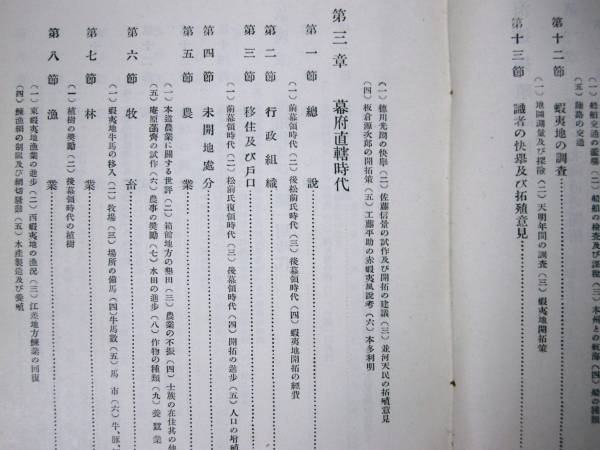 (一)船舶交通の濫觴(二)船舶の檢査及び課税(三)本州との航海(四)船の種類
(五)陸路の交通
第十二節 蝦夷地の調査
(一)地圖調量及び探險(二)天明年間の調査(三)蝦夷地開拓策
第十三節 識者の快擧及び拓殖意見
(一)德川光圀の快擧(二)佐藤信景の試作及び開拓の建議(三)並河天民の拓殖意見
(四)板倉源次郎の開拓策(五)工藤平助の赤蝦夷風說考(六)本多利明
第三章 幕府直轄時代
第一節 總說
(一)前幕領時代(二)後松前氏時代(三)後幕領時代(四)蝦夷地開拓の經費
第二節 行政組織
第三節 移住及び戶口
(一)前幕領時代(二)松前氏復領時代(三)後幕領時代(四)開拓の進步(五)人口の增殖
第四節 未開地處分
第五節 農業
(一)本道農業に關する世評(二)箱館地方の墾田(三)農業の不振(四)士族の在住其の他
(五)庵原菡齋の試作(六)農事の奬勵(七)水田の進步(八)作物の種類(九)養蠶業
第六節 牧畜
(一)蝦夷地牛馬の移入(二)牧場(三)場所の備馬(四)牛馬數(五)馬市(六)牛、豚、
第七節 林業
(一)植樹の奬勵(二)後幕領時代の植樹
第八節 漁業
(一)東蝦夷地漁業の進步(二)西蝦夷地の漁況(三)江差地方鰊業の回復
(四)鰊漁網の制限及び網切騷動(五)水產製造及び養殖